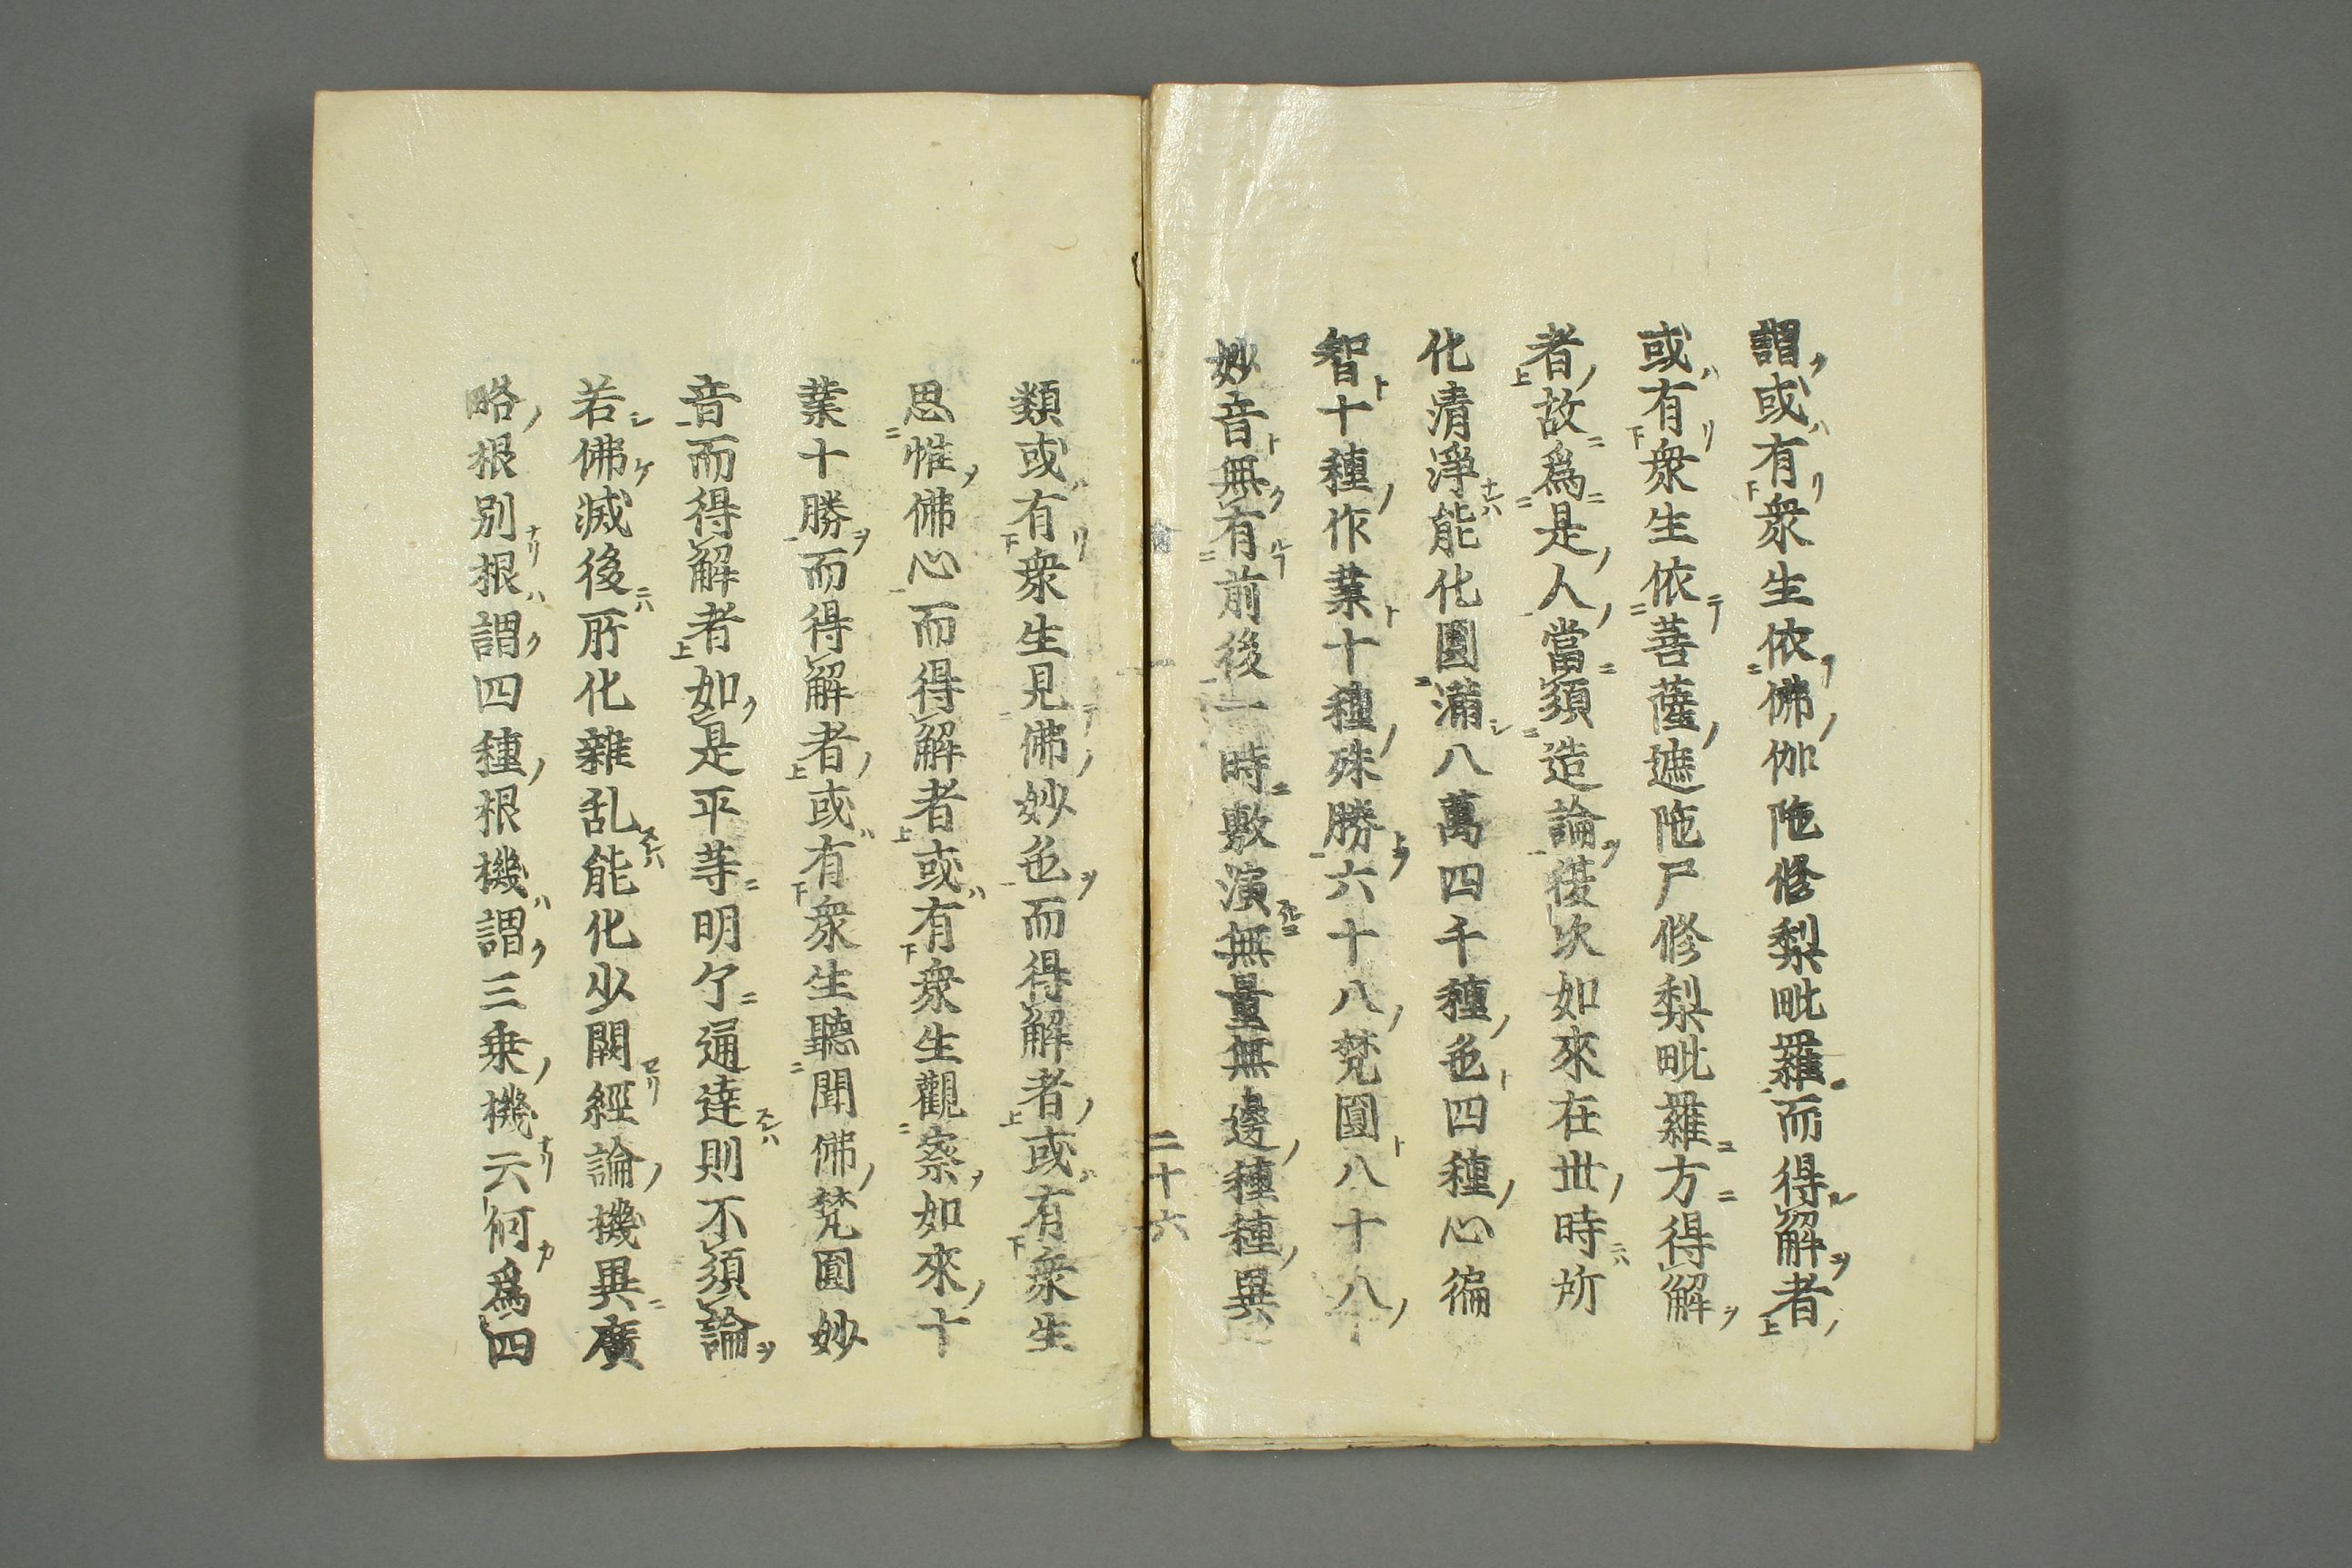 謂或有衆生依佛伽陁修梨毗羅而得解者
或有衆生依菩薩遮陁尸修梨毗羅方得解
者故爲是人當須造論復次如來在世時所
化清淨能化圓滿八萬四千種色四種心徧
智十種作業十種殊勝六十八梵圓八十八
妙音無有前後一時敷演無量無邊種種異
二十六
類或有衆生見佛妙色而得解者或有衆生
思惟佛心而得解者或有衆生觀察如來十
業十勝而得解者或有衆生聽聞佛梵圓妙
音而得解者如是平等明了通達則不須論
若佛滅後所化雜乱能化少闕經論機異廣
略根別根謂四種根機謂三乗機云何爲四